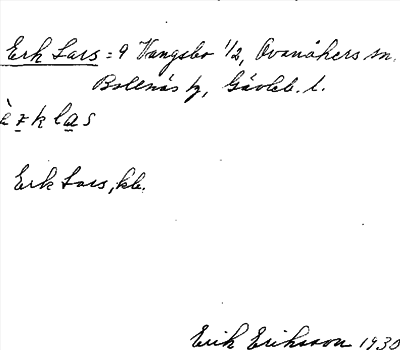 Erk Lars = 9 Vangsbo 1/2, Ovanåkers sn.
Bollnäs tg, Gävleb. l.
è̱zklas
Erk Lars, kb.
Erik Eriksson 1930